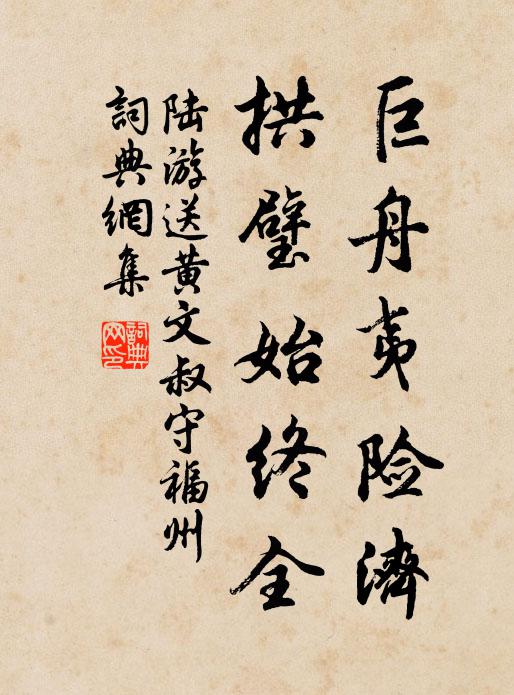 巨舟夷险濟
拱璧始終全
陆游送黄文叔守福州
詞典網集
詞典網印